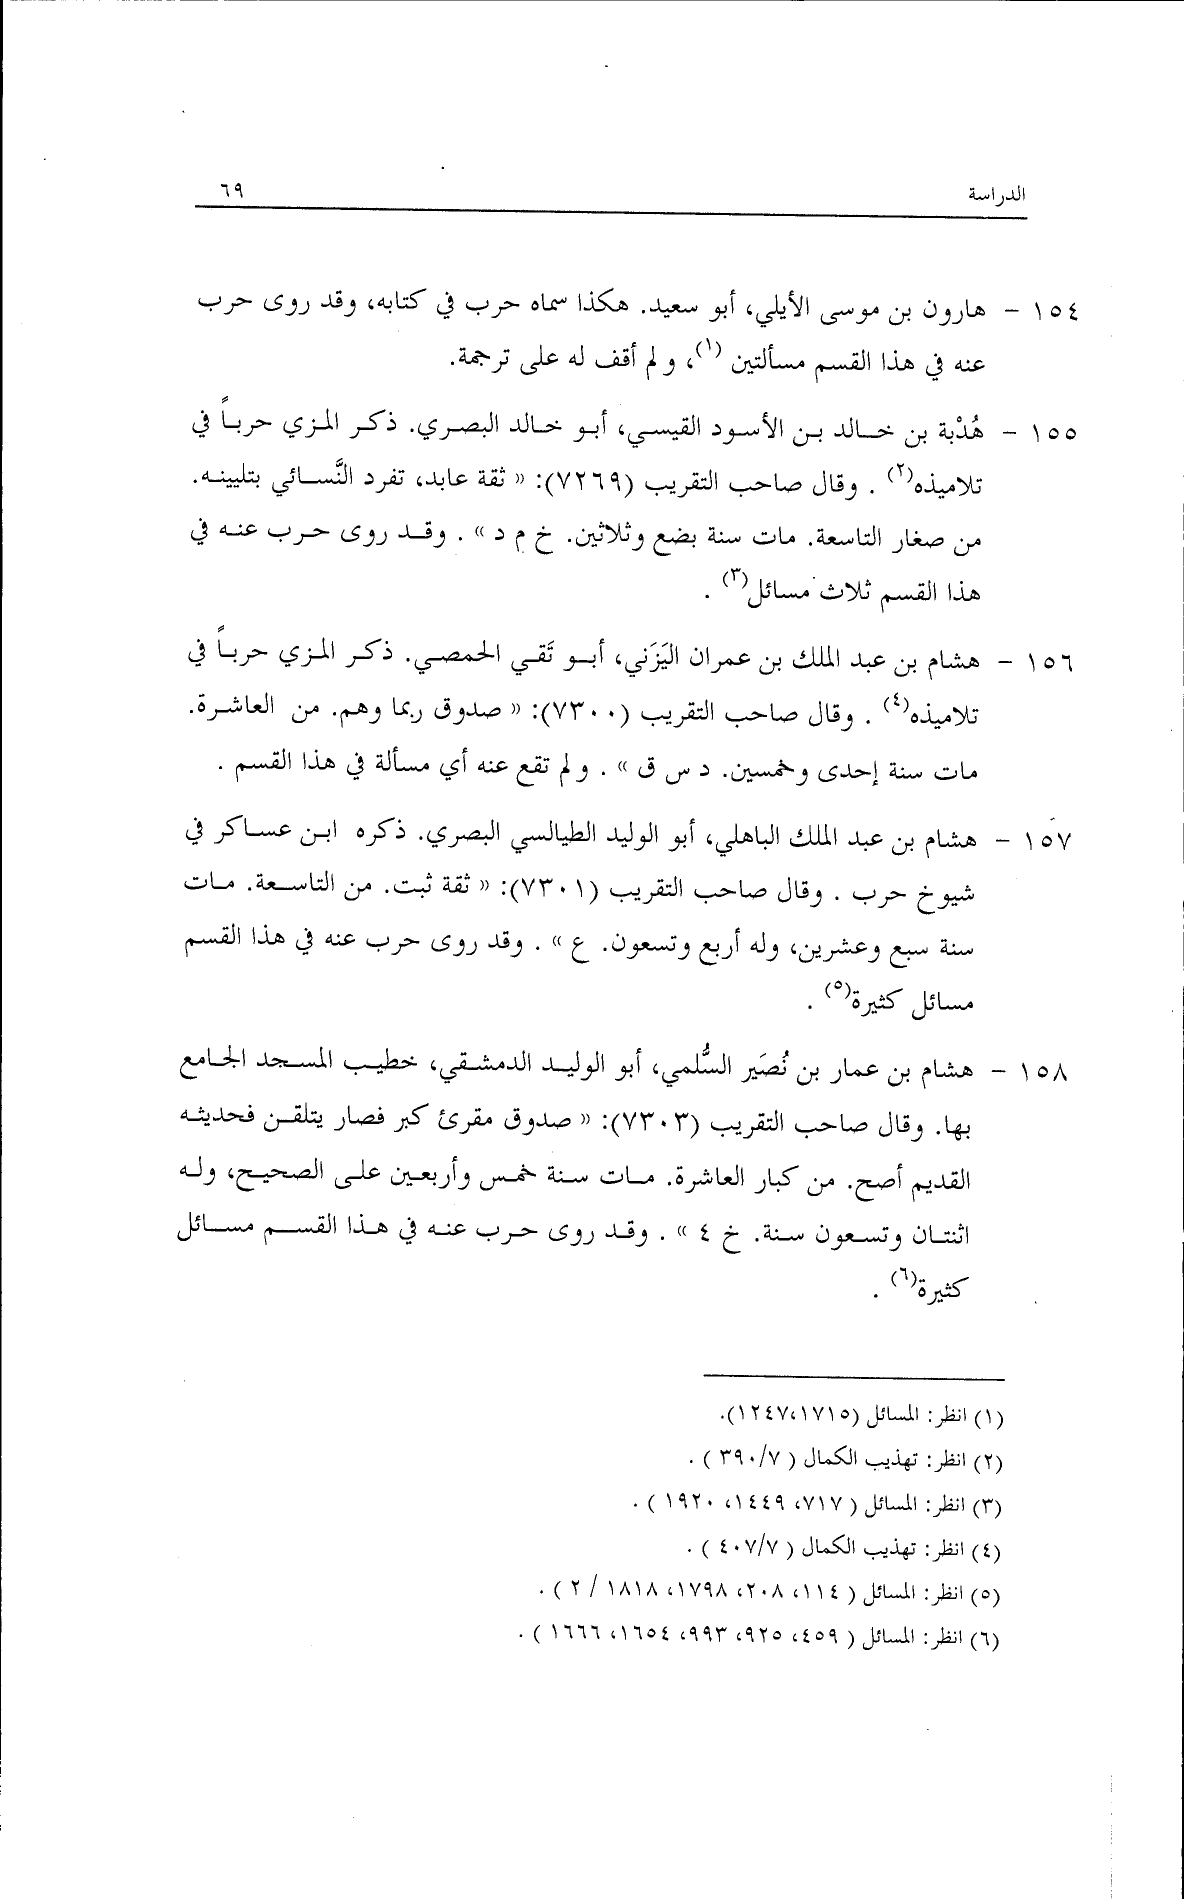 الدراسة ٦٩
١٥٤ - هارون بن موسى الأيلي، أبو سعيد. هكذا سماه حرب في كتابه، وقد روى حرب
عنه في هذا القسم مسألتين (١)، و لم أقف له على ترجمة.
١٥٥ - هُدْبة بن خالد بن الأسود القيسي، أبو خالد البصري. ذكر المزي حرباً في
تلاميذه(٢) . وقال صاحب التقريب (٧٢٦٩): « ثقة عابد، تفرد النَّسائي بتليينه.
من صغار التاسعة. مات سنة بضع وثلاثين. خ م د » . وقد روى حرب عنه في
هذا القسم ثلاث مسائل(٣) .
١٥٦ - هشام بن عبد الملك بن عمران اليَزَني، أبو تَقي الحمصي. ذكر المزي حرباً في
تلاميذه(٤) . وقال صاحب التقريب (٧٣٠٠): « صدوق ربما وهم. من العاشرة.
مات سنة إحدى وخمسين. د س ق » . و لم تقع عنه أي مسألة في هذا القسم .
١٥٧ - هشام بن عبد الملك الباهلي، أبو الوليد الطيالسي البصري. ذكره ابن عساكر في
شيوخ حرب . وقال صاحب التقريب (٧٣٠١): « ثقة ثبت. من التاسعة. مات
سنة سبع وعشرين، وله أربع وتسعون. ع » . وقد روى حرب عنه في هذا القسم
مسائل كثيرة(٥) .
١٥٨ - هشام بن عمار بن نُصَير السُّلمي، أبو الوليد الدمشقي، خطيب المسجد الجامع
بها. وقال صاحب التقريب (٧٣٠٣): « صدوق مقرئ كبر فصار يتلقن فحديثه
القديم أصح. من كبار العاشرة. مات سنة خمس وأربعين على الصحيح، وله
اثنتان وتسعون سنة. خ ٤ » . وقد روى حرب عنه في هذا القسم مسائل
كثيرة(٦) .
(١) انظر: المسائل (١٢٤٧،١٧١٥).
(٢) انظر: تهذيب الكمال ( ٣٩٠/٧ ) .
(٣) انظر: المسائل ( ٧١٧، ١٤٤٩، ١٩٢٠ ) .
(٤) انظر: تهذيب الكمال ( ٤٠٧/٧ ) .
(٥) انظر: المسائل ( ١١٤، ٢٠٨، ١٧٩٨، ١٨١٨ / ٢ ) .
(٦) انظر: المسائل ( ٤٥٩، ٩٢٥، ٩٩٣، ١٦٥٤، ١٦٦٦ ) .